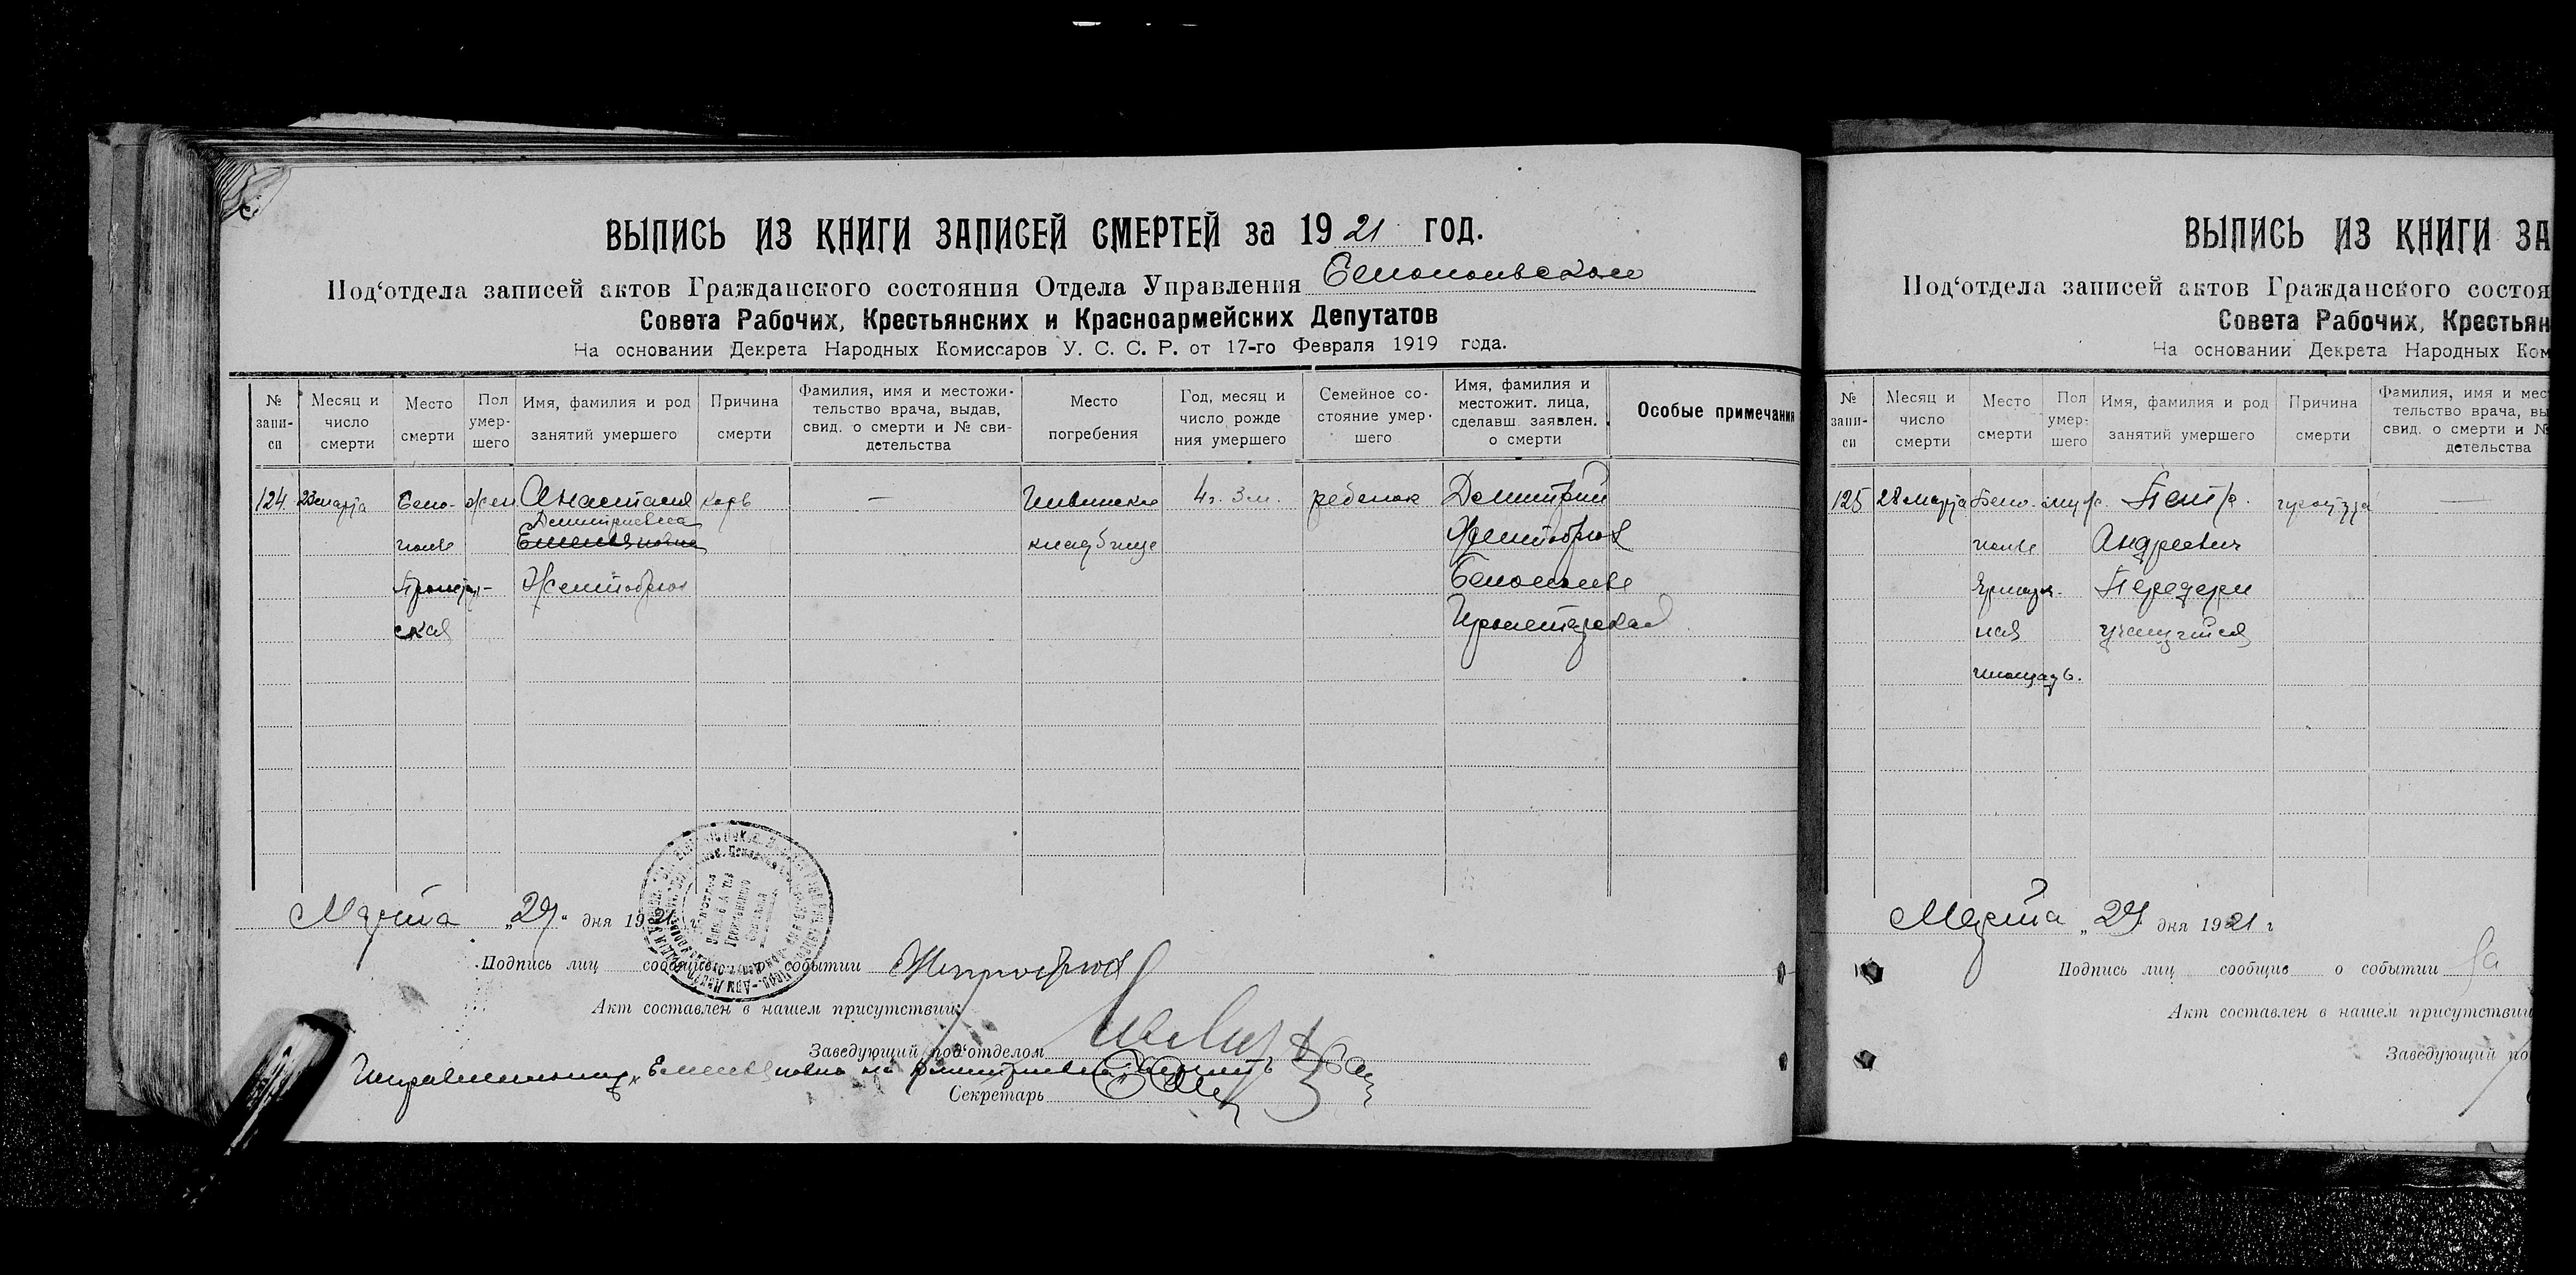 ВЫПИСЬ ИЗ КНИГИ ЗАПИСЕЙ СМЕРТЕЙ за 1921 год.
Под‘отдела записей актов Гражданского состояния Отдела Управления
Совета Рабочих, Крестьянских и Красноармейских Депутатов
На основании Декрета Народных Комиссаров У. С. С. Р. от 17-го Февраля 1919 года.
№ запи-си
Месяц и число смерти
Место смерти
Пол умер-шего
Имя, фамилия и род занятий умершего
Причина смерти
Фамилия, имя и местожи-тельство врача, выдав, свид. о смерти и № сви-детельства
Место погребения
Год, месяц и число рожде ния умершего
Семейное со-стояние умер-шего
Имя, фамилия и местожит. лица, сделавш. заявлен. о смерти
Особые примечания
124 23 марта жен Анастасия корь — 4 г. 3 м. ребенок Дмитрий
Дмитриевна
Емельяновна кладбище Желтобрюх
Пролетар- Желтобрюх
ская Пролетарская
Марта „29“ дня 1921
Подпись лиц событии Желтобрюх
Акт составлен в нашем присутствии:
Заведующий под‘отделом
Емельяновна на Дмитриевна
Секретарь
ВЫПИСЬ ИЗ КНИГИ ЗА
Под‘отдела записей актов Гражданского состоя
Совета Рабочих, Крестьян
На основании Декрета Народных Ком
№ запи-си
Месяц и число смерти
Место смерти
Пол умер-шего
Имя, фамилия и род занятий умершего
Причина смерти
Фамилия, имя и мес тельство врача, вы свид. о смерти и № детельства
125 28 марта муж. Петр. простуда —
Андреевич
Ярмароч- Передери
ная учащийся
площадь.
Марта „29 дня 1921 г
Подпись лиц сообщив о событии
Акт составлен в нашем присутствии
Заведующий по